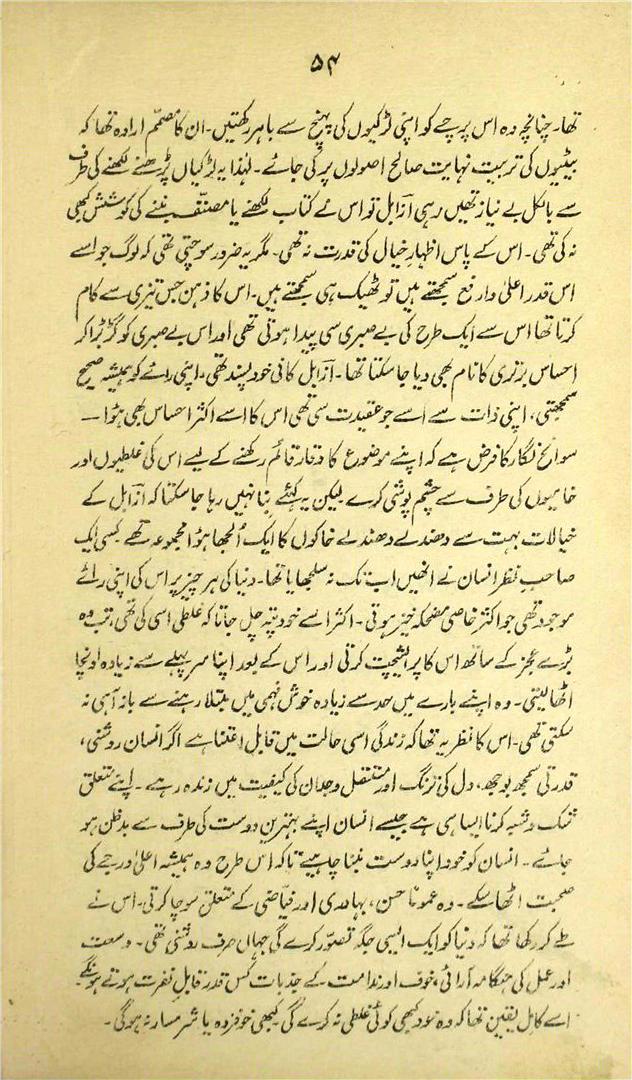 ۵۴
تھا۔ چنانچہ وہ اس پرچے کو اپنی لڑکیوں کی پہنچ سے باہر رکھتیں۔ ان کا مصمّم ارادہ تھا کہ
بیٹیوں کی تربیت نہایت صالح اصولوں پر کی جائے۔ لہٰذا یہ لڑکیاں پڑھنے لکھنے کی طرف
سے بالکل بے نیاز تھیں رہی آزابل تو اس نے کتاب لکھنے یا مصنّفہ بننے کی کوشش کبھی
نہ کی تھی۔ اس کے پاس اظہارِ خیال کی قدرت نہ تھی۔ مگر یہ ضرور سوچتی تھی کہ لوگ جو اسے
اس قدر اعلیٰ و ارفع سمجھتے ہیں تو ٹھیک ہی سمجھتے ہیں۔ اس کا ذہن جس تیزی سے کام
کرتا تھا اس سے ایک طرح کی بے صبری سی پیدا ہوتی تھی اور اس بے صبری کو گڑبڑا کر
احساسِ برتری کا نام بھی دیا جا سکتا تھا۔ آزابل کافی خود پسند تھی۔ اپنی رائے کو ہمیشہ صحیح
سمجھتی، اپنی ذات سے اسے جو عقیدت سی تھی اس کا اسے اکثر احساس بھی ہوا —
سوانح نگار کا فرض ہے کہ اپنے موضوع کا وقار قائم رکھنے کے لیے اس کی غلطیوں اور
خامیوں کی طرف سے چشم پوشی کرے لیکن یہ کہے بنا نہیں رہا جا سکتا کہ آزابل کے
خیالات بہت سے دھندلے دھندلے خاکوں کا ایک اُلجھا ہوا مجموعہ تھے کسی ایک
صاحبِ نظر انسان نے انھیں اب تک نہ سلجھایا تھا۔ دنیا کی ہر چیز پر اس کی اپنی رائے
موجود تھی جو اکثر خاصی مضحکہ خیز ہوتی۔ اکثر اسے خود پتہ چل جاتا کہ غلطی اسی کی تھی، تب وہ
بڑے عجز کے ساتھ اس کا پرائشچت کرتی اور اس کے بعد اپنا سر پہلے سے زیادہ اونچا
اٹھا لیتی۔ وہ اپنے بارے میں حد سے زیادہ خوش فہمی میں مبتلا رہنے سے باز آ ہی نہ
سکتی تھی۔ اس کا نظریہ تھا کہ زندگی اسی حالت میں قابلِ اعتنا ہے اگر انسان روشنی،
قدرتی سمجھ بوجھ، دل کی ترنگ اور مستقل وجدان کی کیفیت میں زندہ رہے۔ اپنے متعلق
شک و شبہ کرنا ایسا ہی ہے جیسے انسان اپنے بہترین دوست کی طرف سے بدظن ہو
جائے۔ انسان کو خود اپنا دوست بننا چاہیے تاکہ اس طرح وہ ہمیشہ اعلیٰ درجے کی
صحبت اٹھا سکے۔ وہ عموماً حسن، بہادری اور فیاضی کے متعلق سوچا کرتی۔ اس نے
طے کر رکھا تھا کہ دنیا کو ایک ایسی جگہ تصوّر کرے گی جہاں صرف روشنی تھی۔ وسعت
اور عمل کی ہنگامہ آرائی، خوف اور ندامت کے جذبات کس قدر قابلِ نفرت ہوتے ہونگے۔
اسے کامل یقین تھا کہ وہ خود کبھی کوئی غلطی نہ کرے گی کبھی خوفزدہ یا شرمسار نہ ہوگی۔